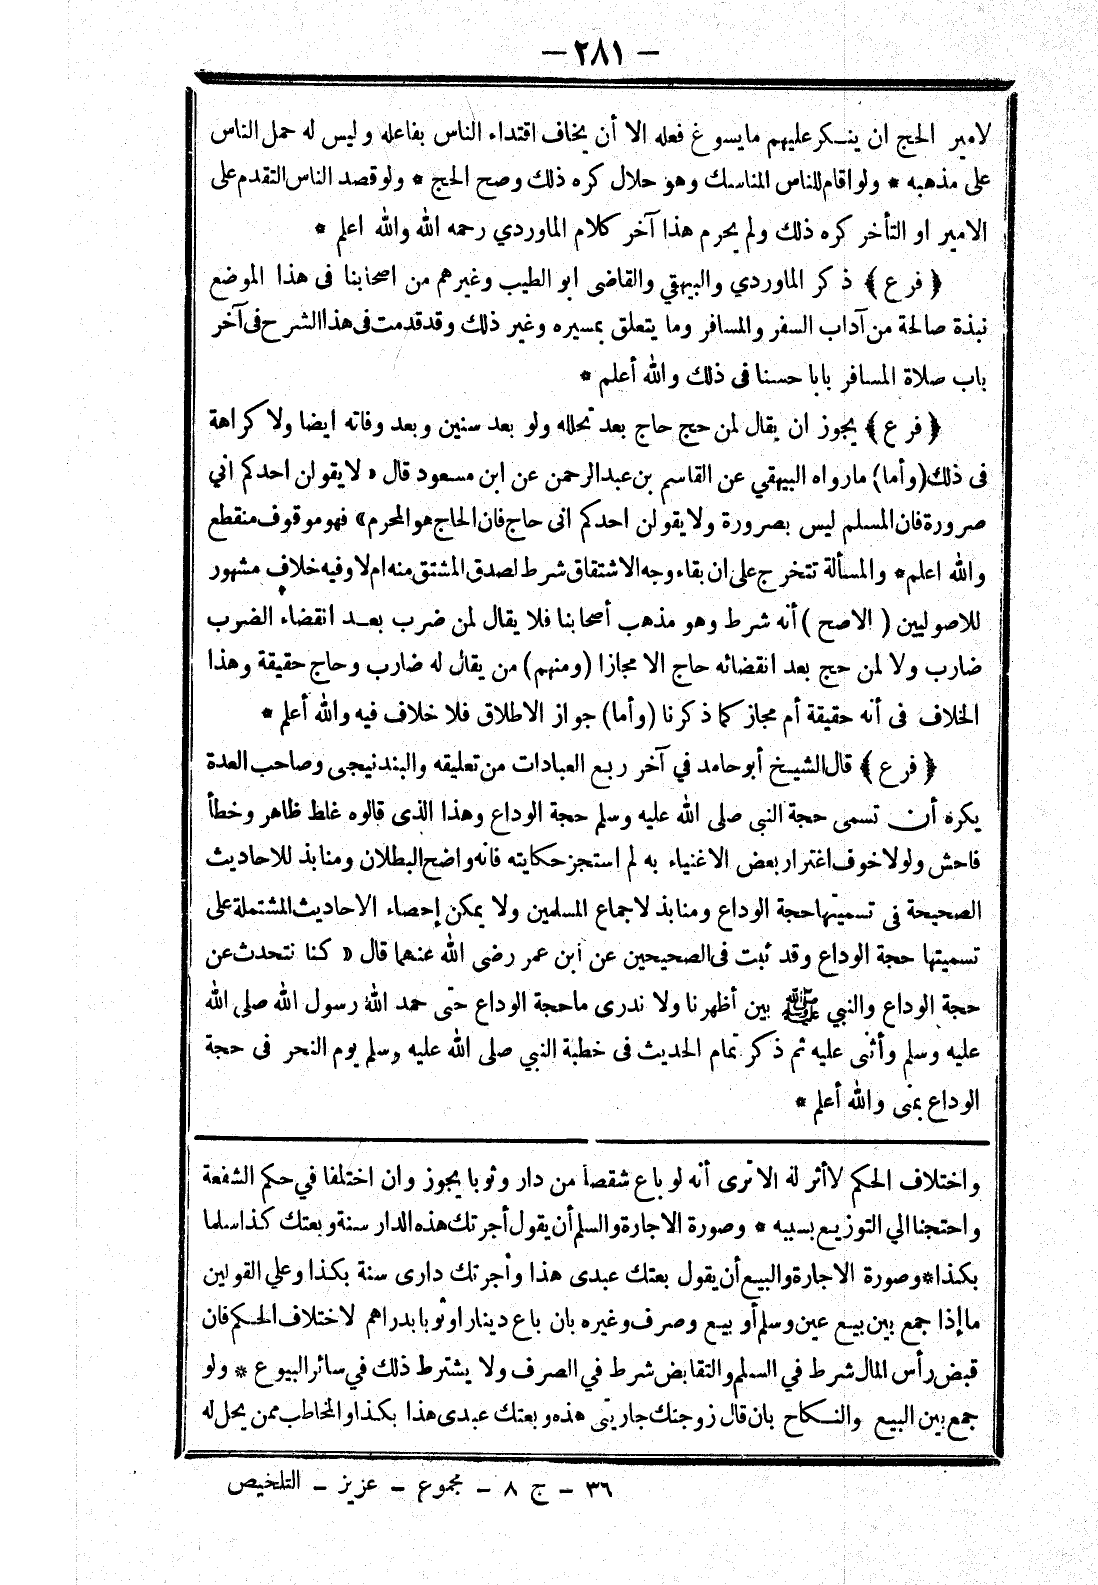 — ٢٨١ —
لامير الحج ان ينكر عليهم ما يسوغ فعله الا أن يخاف اقتداء الناس بفاعله وليس له حمل الناس
على مذهبه * ولو اقام للناس المناسك وهو حلال كره ذلك وصح الحج * ولو قصد الناس التقدم على
الامير او التأخر كره ذلك ولم يحرم هذا آخر كلام الماوردي رحمه الله والله اعلم *
﴿ فرع ﴾ ذكر الماوردي والبيهقي والقاضى ابو الطيب وغيرهم من اصحابنا فى هذا الموضع
نبذة صالحة من آداب السفر والمسافر وما يتعلق بمسيره وغير ذلك وقد قدمت فى هذا الشرح فى آخر
باب صلاة المسافر بابا حسنا فى ذلك والله أعلم *
﴿ فرع ﴾ يجوز ان يقال لمن حج حاج بعد تحلله ولو بعد سنين وبعد وفاته ايضا ولا كراهة
فى ذلك (وأما) ما رواه البيهقي عن القاسم بن عبد الرحمن عن ابن مسعود قال « لا يقولن احدكم اني
صرورة فان المسلم ليس بصرورة ولا يقولن احدكم انى حاج فان الحاج هو المحرم » فهو موقوف منقطع
والله اعلم * والمسألة تتخرج على ان بقاء وجه الاشتقاق شرط لصدق المشتق منه ام لا وفيه خلاف مشهور
للاصوليين ( الاصح ) أنه شرط وهو مذهب أصحابنا فلا يقال لمن ضرب بعد انقضاء الضرب
ضارب ولا لمن حج بعد انقضائه حاج الا مجازا (ومنهم) من يقال له ضارب وحاج حقيقة وهذا
الخلاف فى أنه حقيقة أم مجاز كما ذكرنا (وأما) جواز الاطلاق فلا خلاف فيه والله أعلم *
﴿ فرع ﴾ قال الشيخ أبو حامد في آخر ربع العبادات من تعليقه والبندنيجى وصاحب العدة
يكره أن تسمى حجة النبى صلى الله عليه وسلم حجة الوداع وهذا الذى قالوه غلط ظاهر وخطأ
فاحش ولولا خوف اغترار بعض الاغنياء به لم استجز حكايته فانه واضح البطلان ومنابذ للاحاديث
الصحيحة فى تسميتها حجة الوداع ومنابذ لاجماع المسلمين ولا يمكن إحصاء الاحاديث المشتملة على
تسميتها حجة الوداع وقد ثبت فى الصحيحين عن ابن عمر رضى الله عنهما قال « كنا نتحدث عن
حجة الوداع والنبي ﷺ بين أظهرنا ولا ندرى ما حجة الوداع حتى حمد الله رسول الله صلى الله
عليه وسلم وأثنى عليه ثم ذكر تمام الحديث فى خطبة النبي صلى الله عليه وسلم يوم النحر فى حجة
الوداع بمنى والله أعلم *
واختلاف الحكم لا أثر له الا ترى أنه لو باع شقصا من دار وثوبا يجوز وان اختلفا في حكم الشفعة
واحتجنا الي التوزيع بسببه * وصورة الاجارة والسلم أن يقول أجرتك هذه الدار سنة وبعتك كذا سلما
بكذا * وصورة الاجارة والبيع أن يقول بعتك عبدى هذا وأجرتك دارى سنة بكذا وعلي القولين
ما إذا جمع بين بيع عين وسلم أو بيع وصرف وغيره بان باع دينارا وثوبا بدراهم لاختلاف الحكم فان
قبض رأس المال شرط في السلم والتقابض شرط في الصرف ولا يشترط ذلك في سائر البيوع * ولو
جمع بين البيع والنكاح بان قال زوجتك جاريتى هذه وبعتك عبدى هذا بكذا والمخاطب ممن يحل له
٣٦ – ج ٨ – مجموع – عزيز – التلخيص